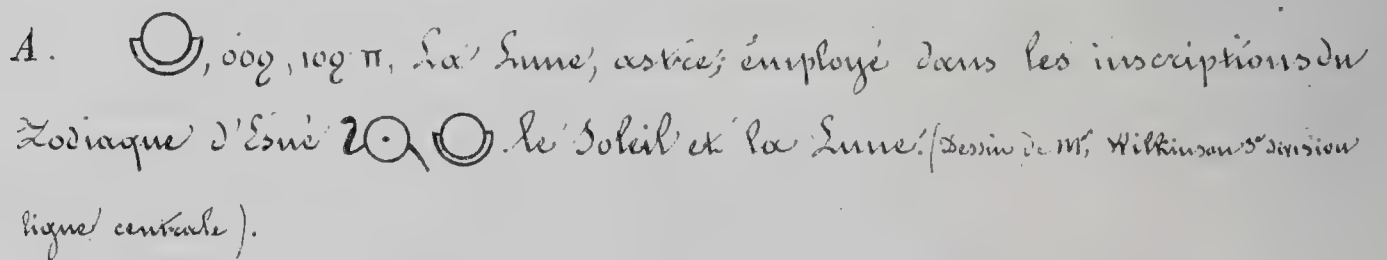 A. , ⲟⲟϩ, ⲓⲟϩ ⲡ, La Lune, astre; employé dans les inscriptions du
Zodiaque d'Esné le Soleil et la Lune. (Dessin de Mr. Wilkinson 3e division
ligne centrale).